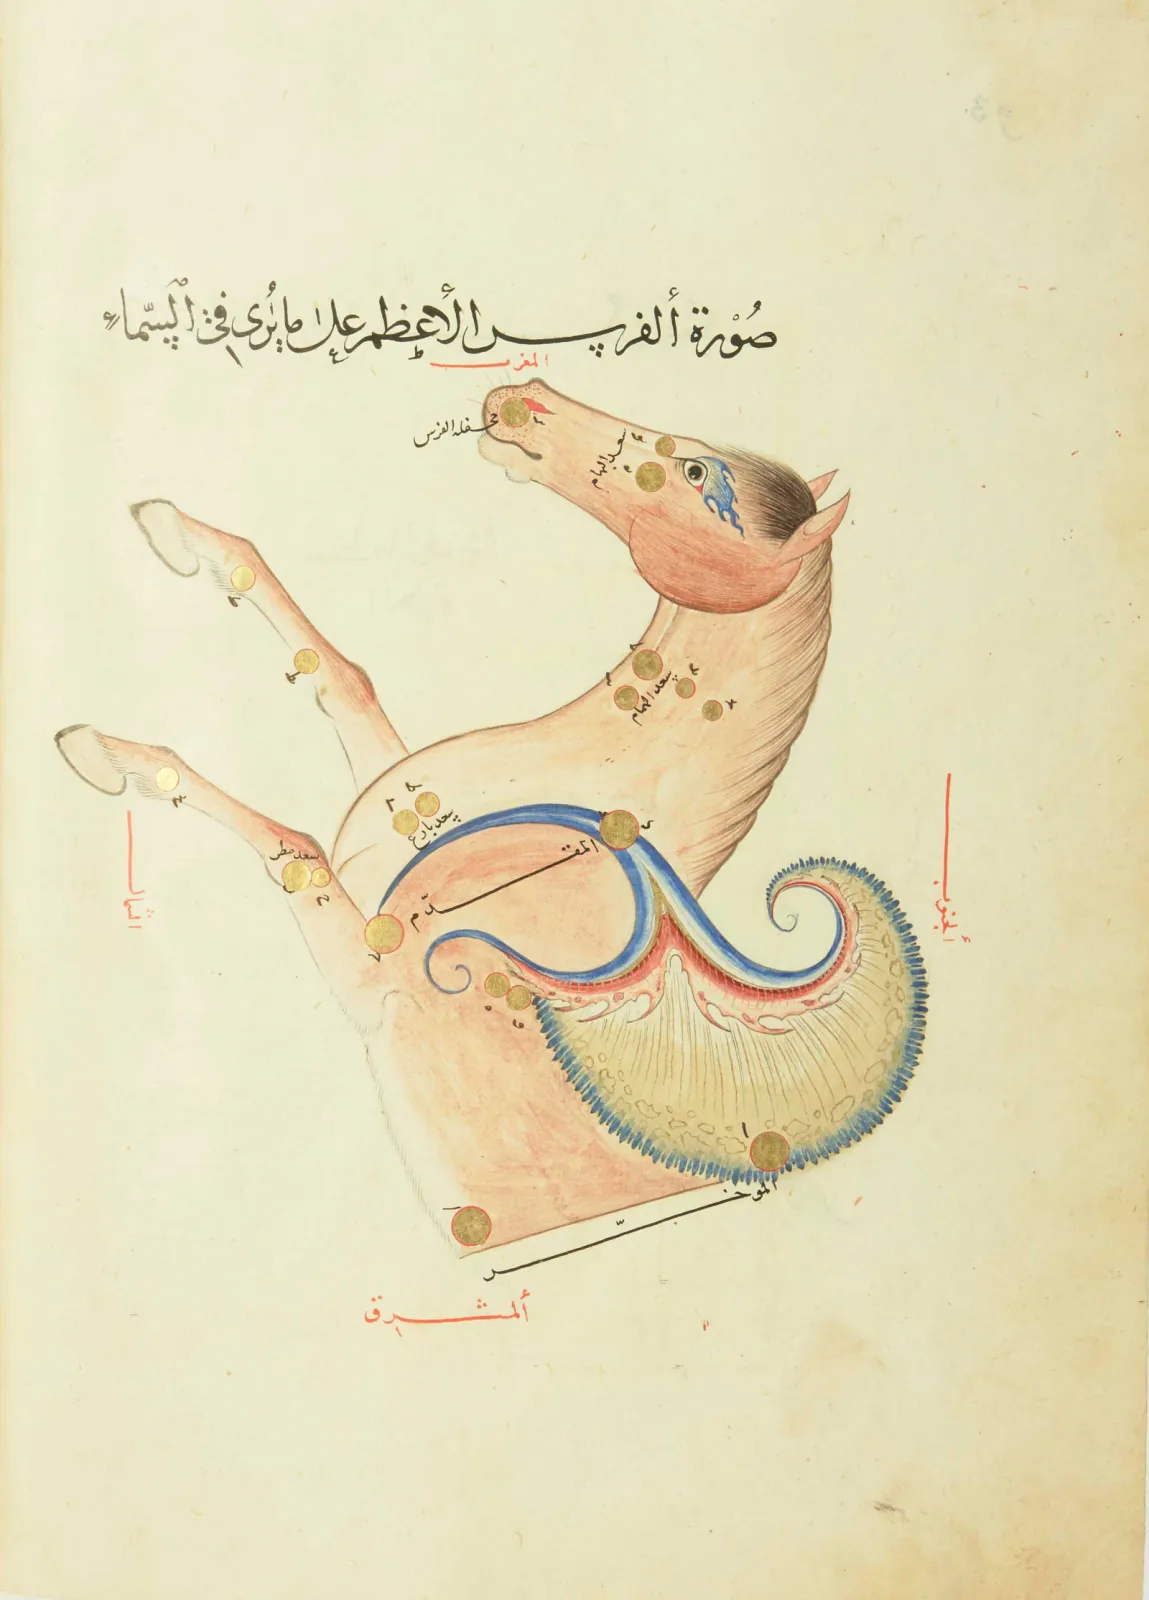 صُوْرة ألفرس الأعظم على ما يُرى في السّماء
المغرب
جحفله الفرس
سعد البهام
سعد الهمام
سعد بارع
سعد مطر
المقدّم
الشمال
ألجنوب
الموخّر
ألمشرق